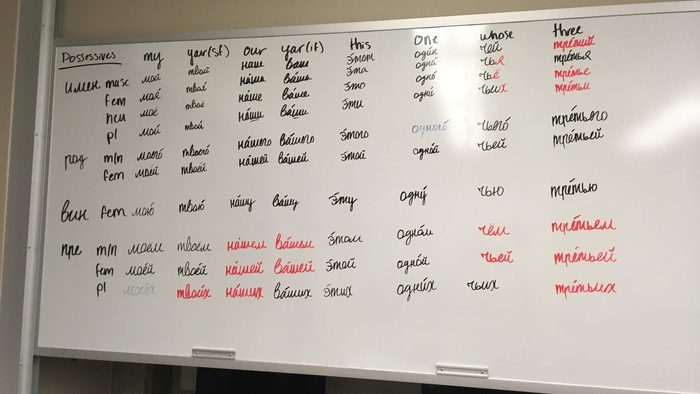 Possessives my your(sf) our your(if) this one whose three
имен masc мой твой наш ваш э́тот оди́н чей тре́тий
fem моя́ твоя́ на́ша ва́ша э́та одна́ чья тре́тья
neu моё твоё на́ше ва́ше э́то одно́ чьё тре́тье
pl мои́ твои́ на́ши ва́ши э́ти одни́ чьих тре́тьи
род m/n моего́ твоего́ на́шего ва́шего э́того одного́ чьего́ тре́тьего
fem мое́й твое́й на́шей ва́шей э́той одно́й чьей тре́тьей
вин fem мою́ твою́ на́шу ва́шу э́ту одну́ чью тре́тью
пре m/n моем твоем на́шем ва́шем э́том одно́м чём тре́тьем
fem мое́й твое́й на́шей ва́шей э́той одно́й чьей тре́тьей
pl мои́х твои́х на́ших ва́ших э́тих одни́х чьих тре́тьих